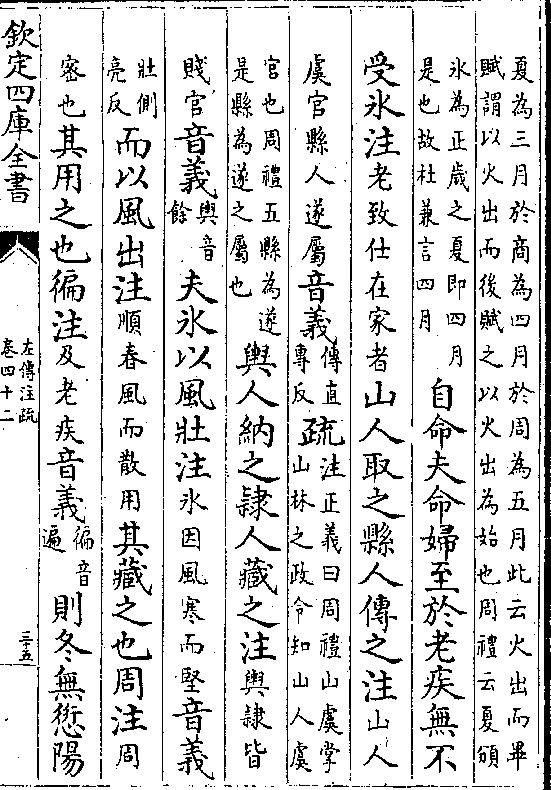 夏為三月於商為四月於周為五月此云火出而畢
賦謂以火出而後賦之以火出為始也周禮云夏頒
氷為正歲之夏即四月
是也故杜兼言四月
自命夫命婦至於老疾無不
受氷注老致仕在家者山人取之縣人傳之注山人
虞官縣人遂屬音義傳直
專反疏注正義曰周禮山虞掌
山林之政令知山人虞
官也周禮五縣為遂
是縣為遂之屬也
輿人納之隷人藏之注輿隷皆
賤官音義輿音
餘夫氷以風壯注氷因風寒而堅音義
壯側
亮反而以風出注順春風而散用其藏之也周注周
宻也其用之也徧注及老疾音義徧音
遍則冬無愆陽
欽定四庫全書
左傳注疏
卷四十二
三十五